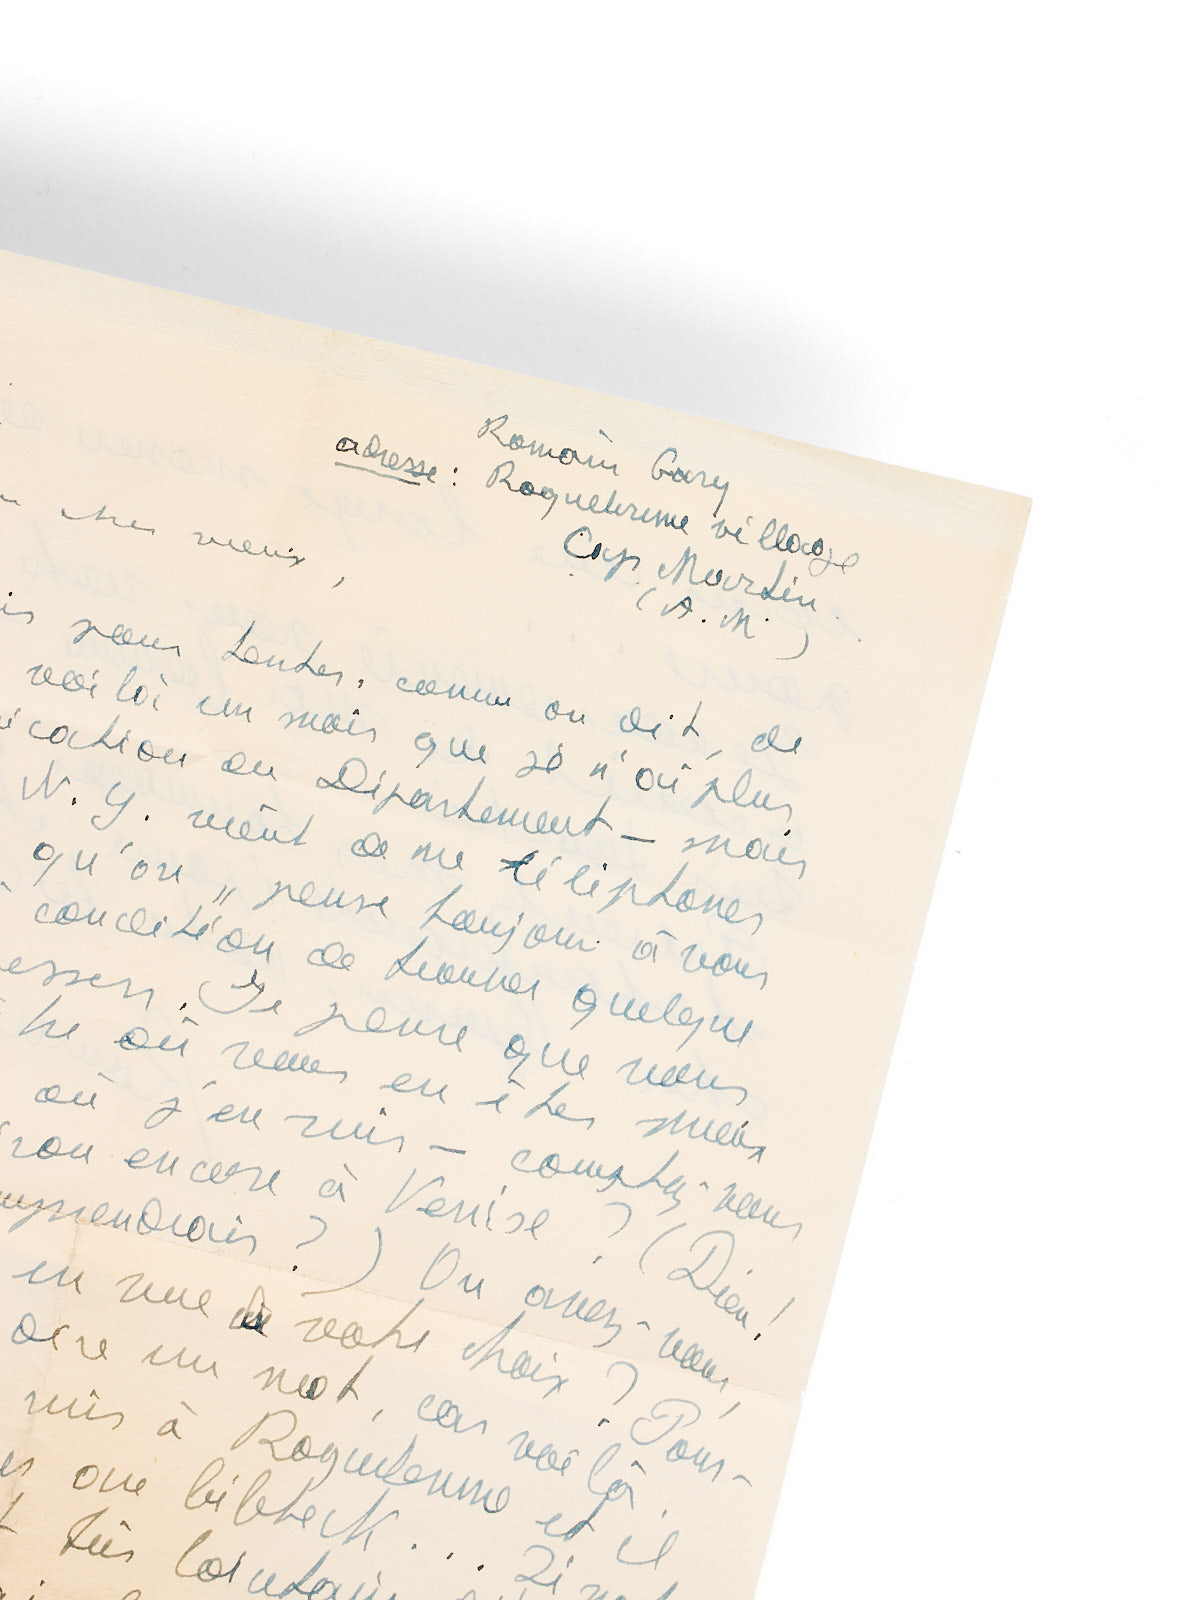 Romain Gary
adresse : Roquebrune village
Cap Martin
(A. M.)
cher vieux,
pour tenter, comme on dit, de
voilà un mois que je n'ai plus
ication du Département — mais
N. Y. vient de me téléphoner
qu'on "pense toujours à vous
condition de trouver quelque
esser. Je pense que vous
tre où vous en êtes mieux
où j'en suis — comptez-vous
encore à Venise ? (Dieu !
omprendrais ? ) Ou avez-vous,
en vue de votre choix ? Pour-
dire un mot, car voilà.
suis à Roquebrune et il
que bifteck . . . Si
très lointain